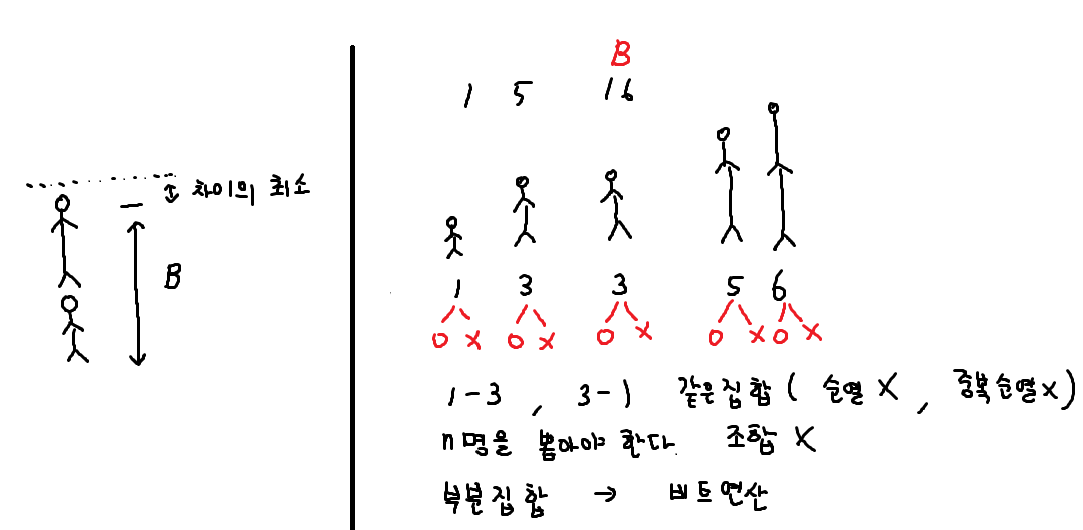 차이의 최소
B
B
1 5 16
1 3 3 5 6
O X O X O X O X O X
1-3 , 3-1 같은집합 ( 순열 X , 중복순열 X )
n명을 뽑아야 한다. 조합 X
부분집합 → 비트연산